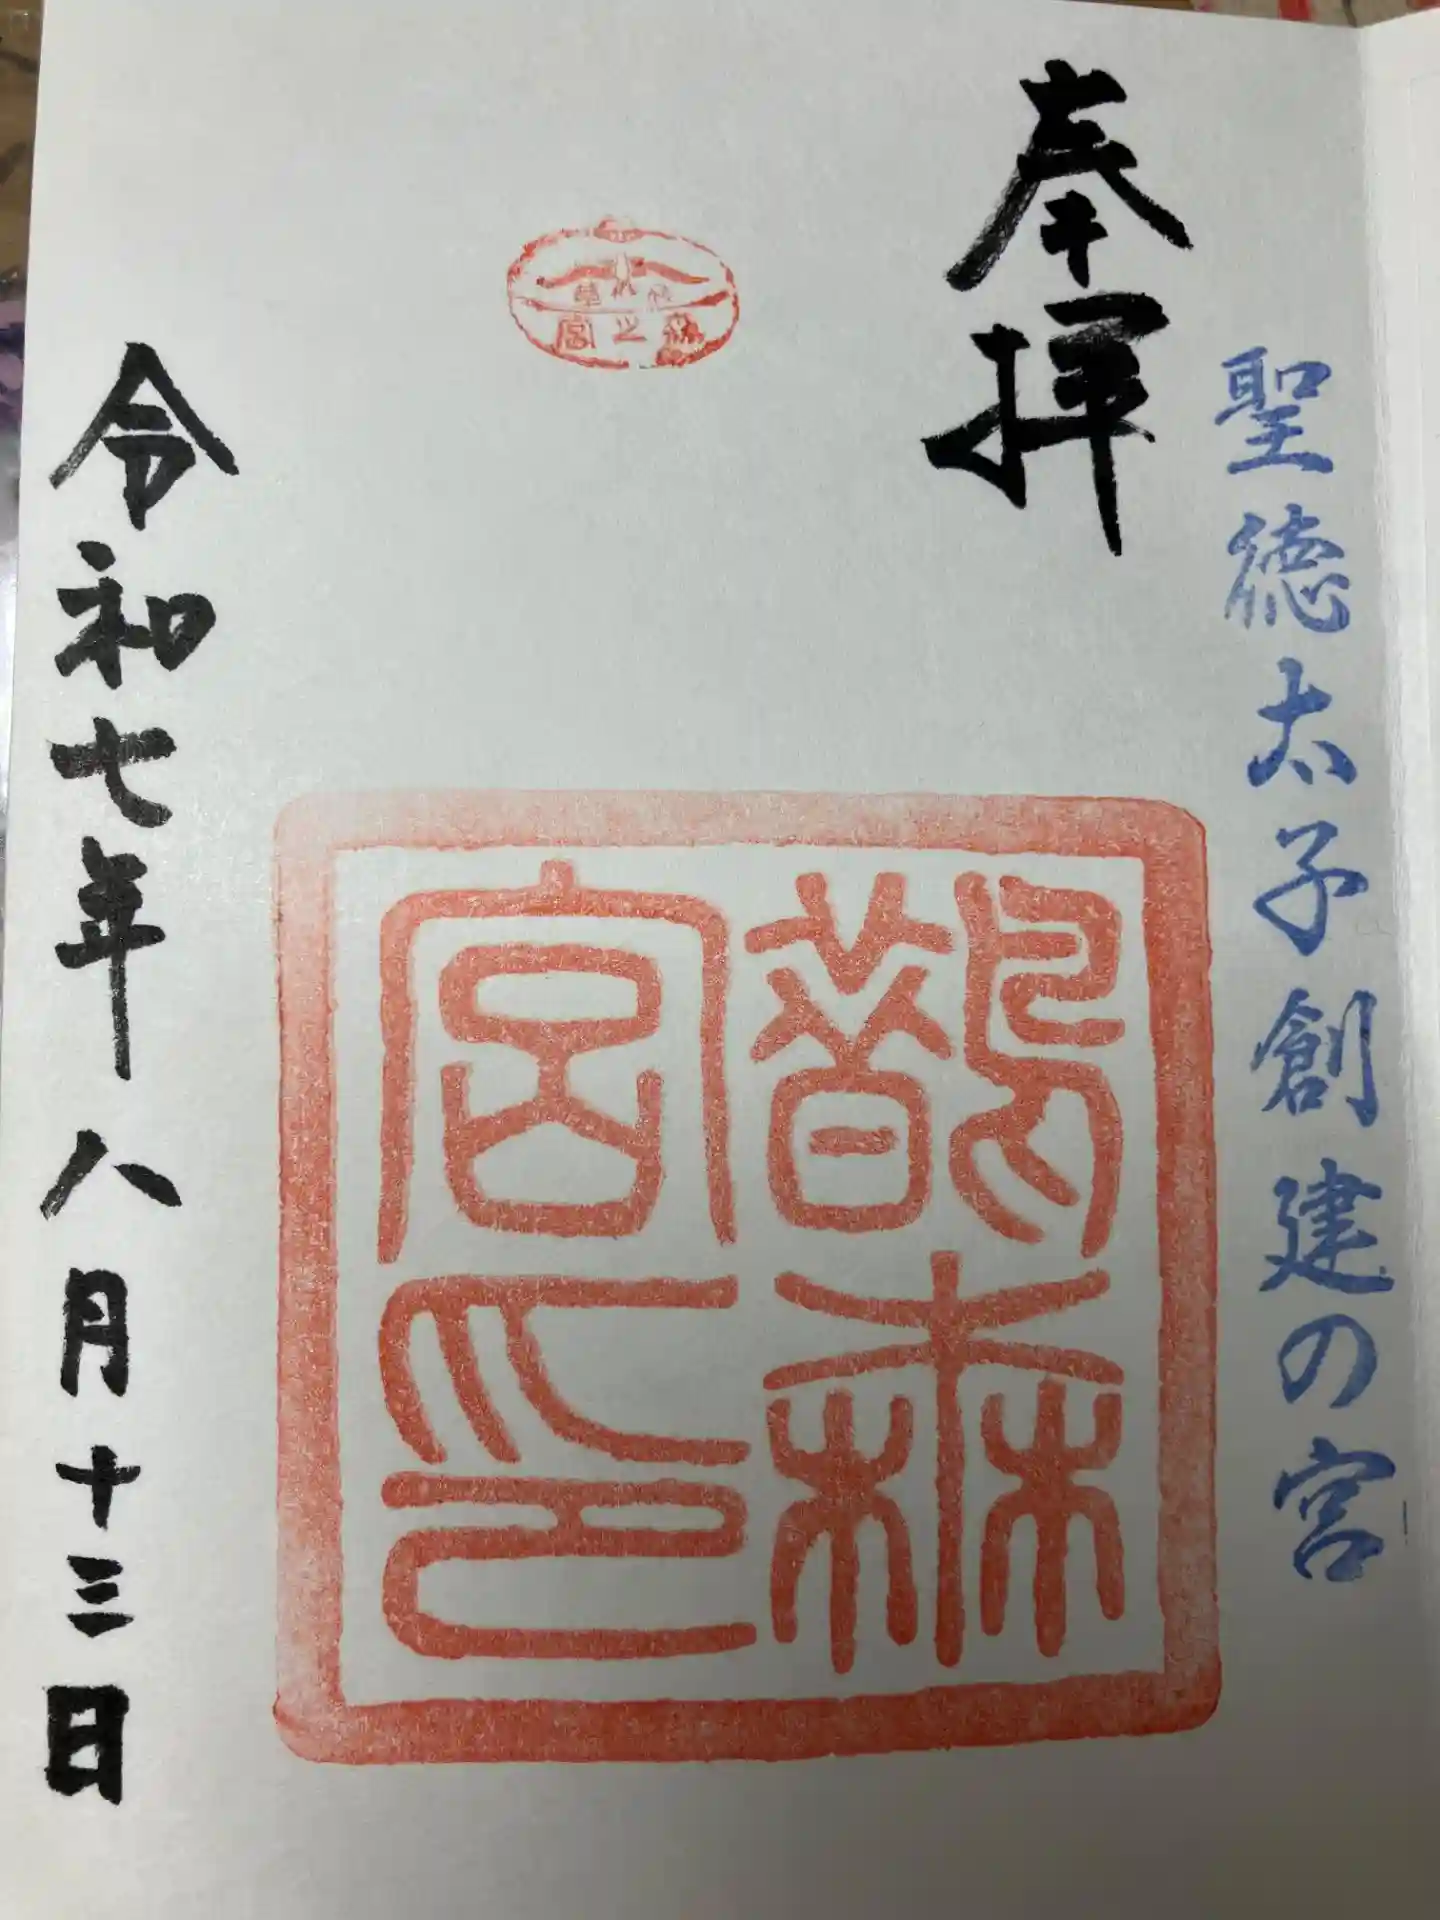 聖徳太子創建の宮
奉拝
鵲森
宮印
森之宮
令和七年八月十三日